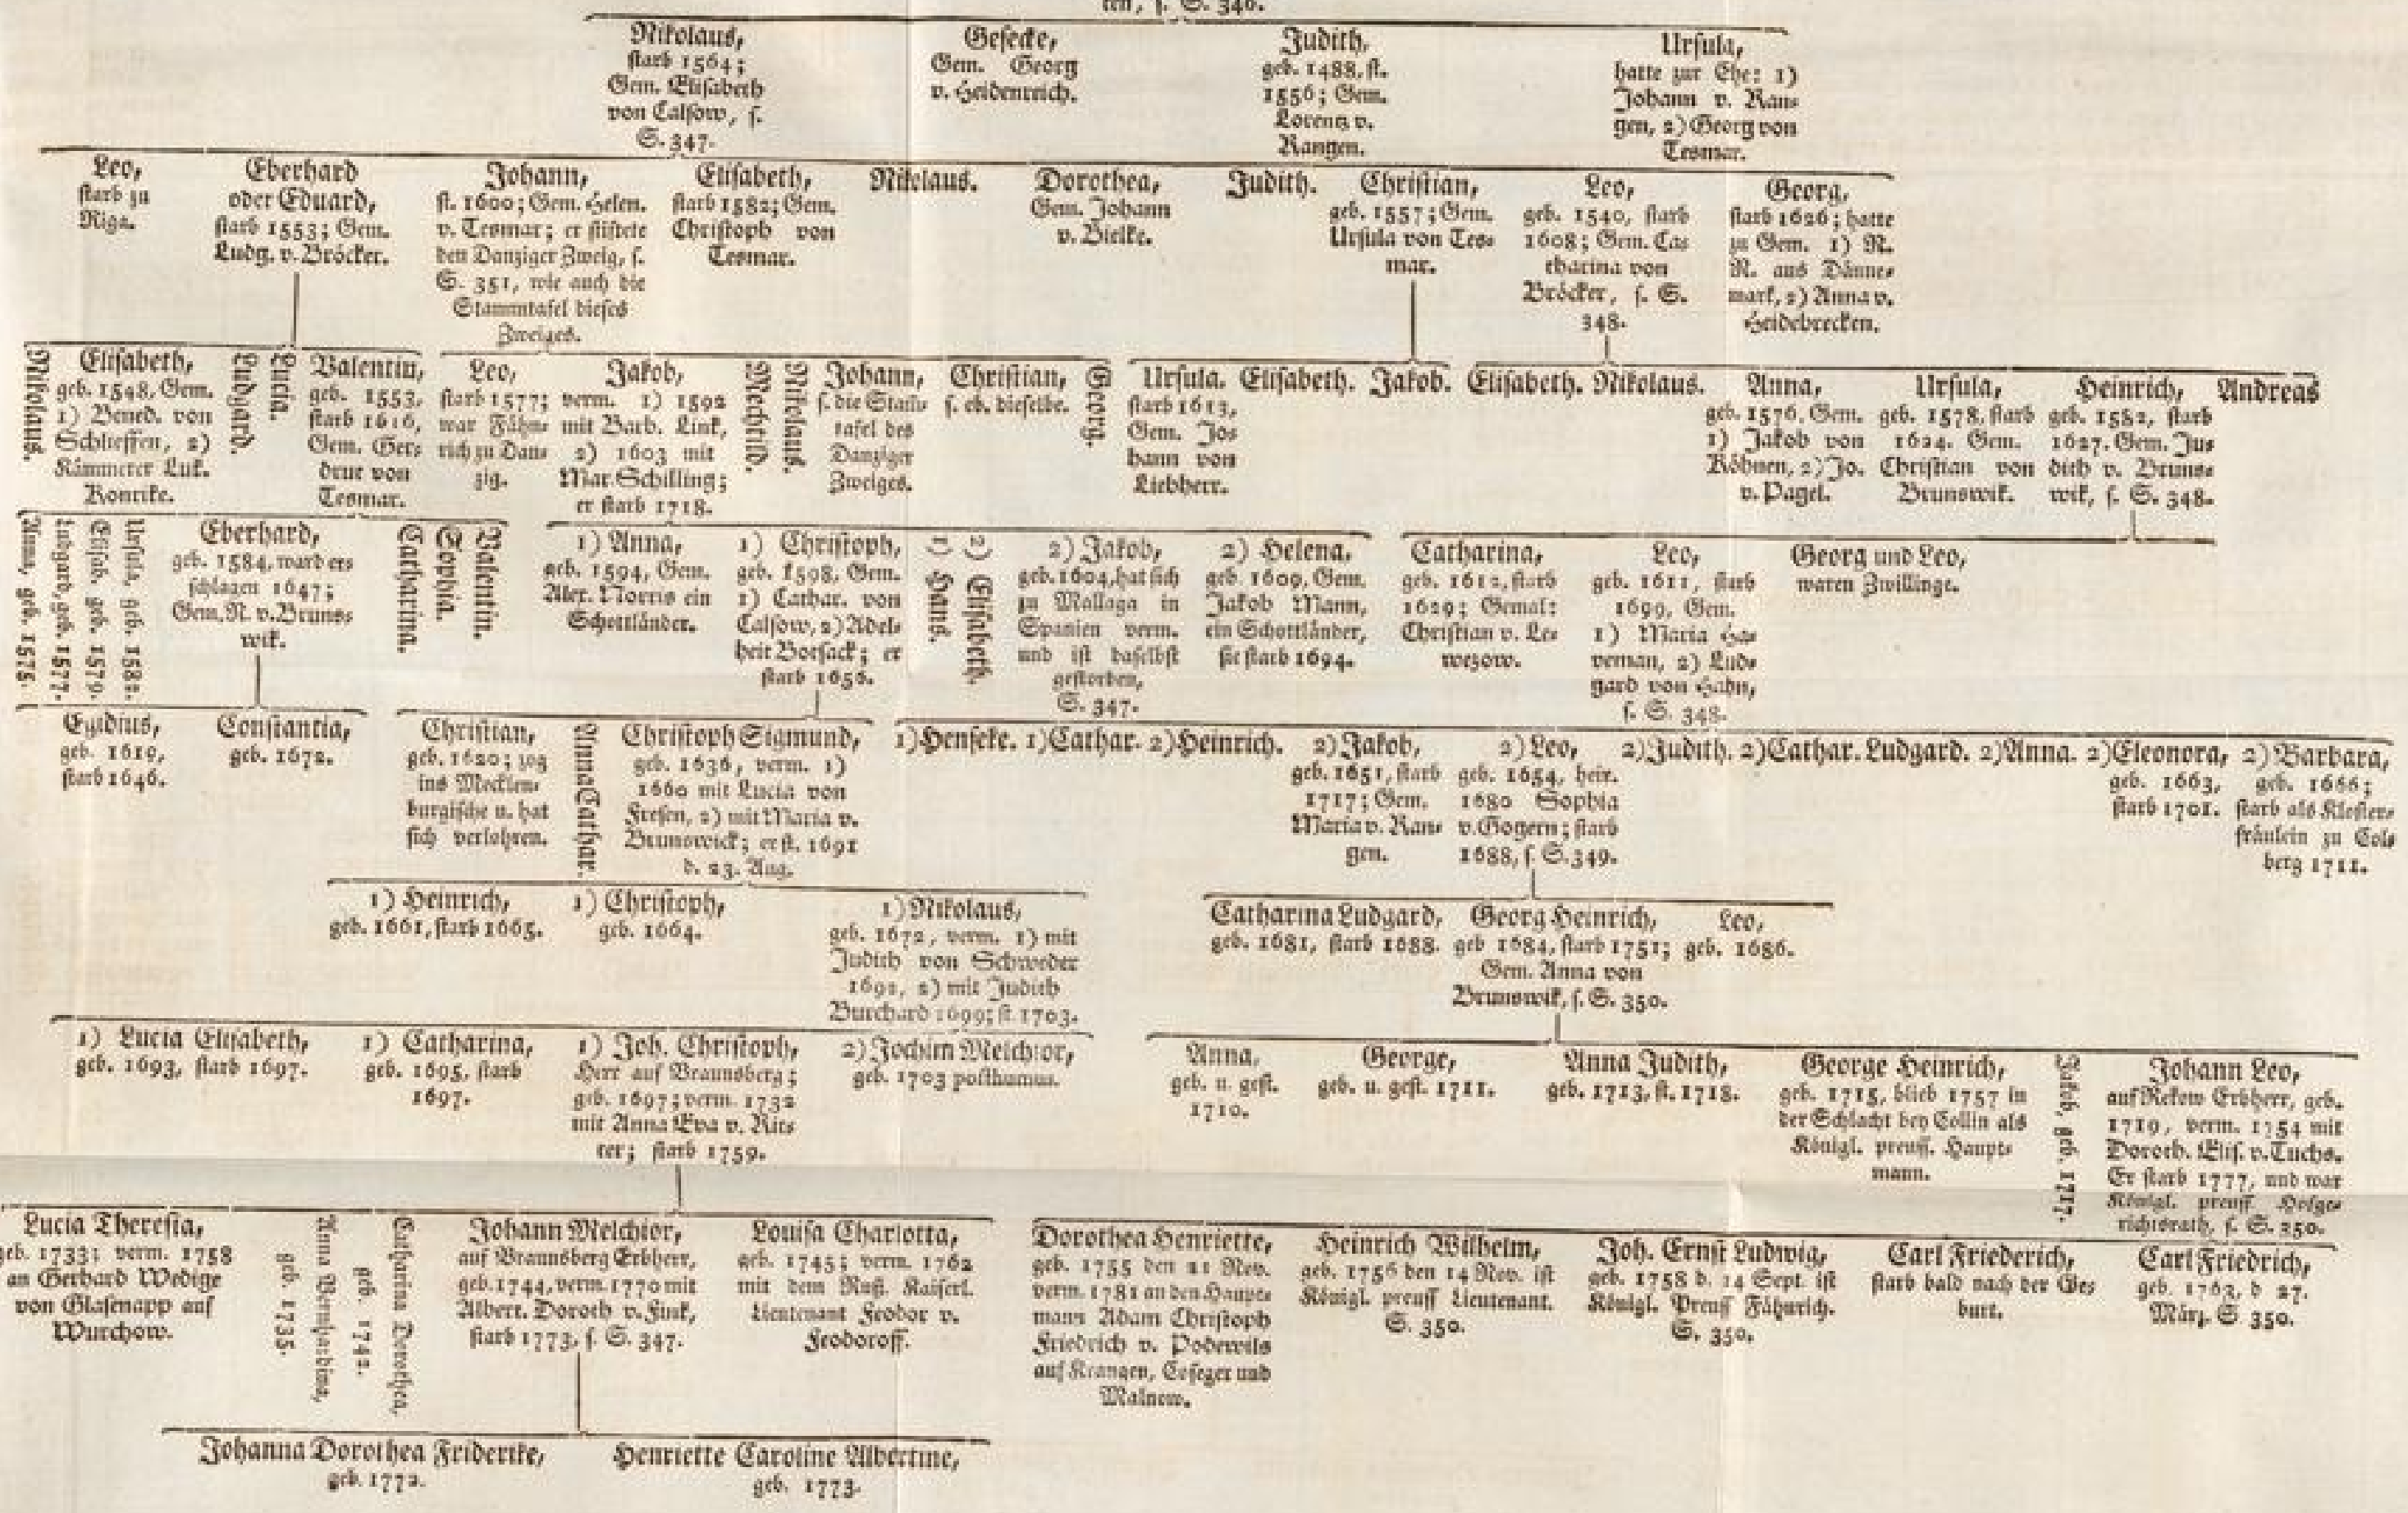 ten, s. S. 346.
Nikolaus,
starb 1564;
Gem. Elisabeth
von Calsow, s.
S. 347.
Gesecke,
Gem. Georg
v. Heidenreich.
Judith,
geb. 1488, st.
1556; Gem.
Lorentz v.
Rangen.
Ursula,
hatte zur Ehe: 1)
Johann v. Ran-
gen, 2) Georg von
Tesmar.
Leo,
starb zu
Riga.
Eberhard
oder Eduard,
starb 1553; Gem.
Ludg. v. Bröcker.
Johann,
st. 1600; Gem. Helen.
v. Tesmar; er stiftete
den Danziger Zweig, s.
S. 351, wie auch die
Stammtafel dieses
Zweiges.
Elisabeth,
starb 1582; Gem.
Christoph von
Tesmar.
Nikolaus.
Dorothea,
Gem. Johann
v. Bielke.
Judith.
Christian,
geb. 1557; Gem.
Ursula von Tes-
mar.
Leo,
geb. 1540, starb
1608; Gem. Ca-
tharina von
Bröcker, s. S.
348.
Georg,
starb 1626; hatte
zu Gem. 1) N.
N. aus Dänne-
mark, 2) Anna v.
Heidebrecken.
Nikolaus.
Elisabeth,
geb. 1548, Gem.
1) Bened. von
Schlieffen, 2)
Kämmerer Luk.
Ronrike.
Ludgard.
Lucia.
Valentin,
geb. 1553,
starb 1616,
Gem. Ger-
drut von
Tesmar.
Leo,
starb 1577;
war Fähn-
rich zu Dan-
zig.
Jakob,
verm. 1) 1592
mit Barb. Link,
2) 1603 mit
Mar. Schilling;
er starb 1718.
Mechtild.
Nikolaus.
Johann,
s. die Stam-
tafel des
Danziger
Zweiges.
Christian,
s. eb. dieselbe.
Georg.
Ursula.
starb 1613,
Gem. Jo-
hann von
Liebherr.
Elisabeth.
Jakob.
Elisabeth.
Nikolaus.
Anna,
geb. 1576, Gem.
1) Jakob von
Röhnen, 2) Jo.
v. Pagel.
Ursula,
geb. 1578, starb
1624. Gem.
Christian von
Brunswik.
Heinrich,
geb. 1582, starb
1627. Gem. Ju-
dith v. Bruns-
wik, s. S. 348.
Andreas
Anna, geb. 1575.
Ludgard, geb. 1577.
Elisab. geb. 1579.
Ursula, geb. 1582.
Eberhard,
geb. 1584, ward er-
schlagen 1647;
Gem. N. v. Bruns-
wik.
Catharina.
Sophia.
Valentin.
1) Anna,
geb. 1594, Gem.
Alex. Norris ein
Schottländer.
1) Christoph,
geb. 1598, Gem.
1) Cathar. von
Calsow, 2) Adel-
heit Borsack; er
starb 1656.
1) Hans.
2) Elisabeth.
2) Jakob,
geb. 1604, hat sich
zu Mallaga in
Spanien verm.
und ist daselbst
gestorben,
S. 347.
2) Helena.
geb. 1609, Gem.
Jakob Mann,
ein Schottländer,
sie starb 1694.
Catharina,
geb. 1612, starb
1629; Gemal:
Christian v. Le-
wezow.
Leo,
geb. 1611, starb
1699, Gem.
1) Maria Ha-
veman, 2) Lud-
gard von Hahn,
s. S. 348.
Georg und Leo,
waren Zwillinge.
Egidius,
geb. 1619,
starb 1646.
Constantia,
geb. 1672.
Christian,
geb. 1620; zog
ins Mecklen-
burgische u. hat
sich verlohren.
Anna Cathar.
Christoph Sigmund,
geb. 1636, verm. 1)
1660 mit Lucia von
Fresen, 2) mit Maria v.
Brunswick; er st. 1691
d. 23. Aug.
1) Henseke. 1) Cathar. 2) Heinrich.
2) Jakob,
geb. 1651, starb
1717; Gem.
Maria v. Ran-
gen.
2) Leo,
geb. 1654, heir.
1680 Sophia
v. Gogern; starb
1688, s. S. 349.
2) Judith. 2) Cathar. Ludgard. 2) Anna.
2) Eleonora,
geb. 1663,
starb 1701.
2) Barbara,
geb. 1666;
starb als Kloster-
fräulein zu Col-
berg 1711.
1) Heinrich,
geb. 1661, starb 1665.
1) Christoph,
geb. 1664.
1) Nikolaus,
geb. 1672, verm. 1) mit
Judith von Schweder
1692, 2) mit Judith
Burchard 1699; st. 1703.
Catharina Ludgard,
geb. 1681, starb 1688.
Georg Heinrich,
geb 1684, starb 1751;
Gem. Anna von
Brunswik, s. S. 350.
Leo,
geb. 1686.
1) Lucia Elisabeth,
geb. 1693, starb 1697.
1) Catharina,
geb. 1695, starb
1697.
1) Joh. Christoph,
Herr auf Braunsberg;
geb. 1697; verm. 1732
mit Anna Eva v. Rit-
ter; starb 1759.
2) Jochim Melchior,
geb. 1703 posthumus.
Anna,
geb. u. gest.
1710.
George,
geb. u. gest. 1711.
Anna Judith,
geb. 1713, st. 1718.
George Heinrich,
geb. 1715, blieb 1757 in
der Schlacht bey Collin als
Königl. preuss. Haupt-
mann.
Jakob, geb. 1717.
Johann Leo,
auf Rekow Erbherr, geb.
1719, verm. 1754 mit
Doroth. Elis. v. Tuchs.
Er starb 1777, und war
Königl. preuss Hofge-
richtsrath, s. S. 350.
Lucia Theresia,
geb. 1733; verm. 1758
an Gerhard Wedige
von Glasenapp auf
Wurchow.
Anna Bernhardina,
geb. 1735.
Catharina Dorothea,
geb. 1742.
Johann Melchior,
auf Braunsberg Erbherr,
geb. 1744, verm. 1770 mit
Albert. Doroth v. Fink,
starb 1773, s. S. 347.
Louisa Charlotta,
geb. 1745; verm. 1762
mit dem Russ. Kaiserl.
Lieutenant Feodor v.
Feodoroff.
Dorothea Henriette,
geb. 1755 den 21 Nov.
verm. 1781 an den Haupt-
mann Adam Christoph
Friedrich v. Podewils
auf Krangen, Coseger und
Malnow.
Heinrich Wilhelm,
geb. 1756 den 14 Nov. ist
Königl. preuss Lieutenant.
S. 350.
Joh. Ernst Ludwig,
geb. 1758 d. 14 Sept. ist
Königl. Preuss Fähnrich.
S. 350.
Carl Friederich,
starb bald nach der Ge-
burt.
Carl Friedrich,
geb. 1763, d 27.
März. S 350.
Johanna Dorothea Friderike,
geb. 1772.
Henriette Caroline Albertine,
geb. 1773.